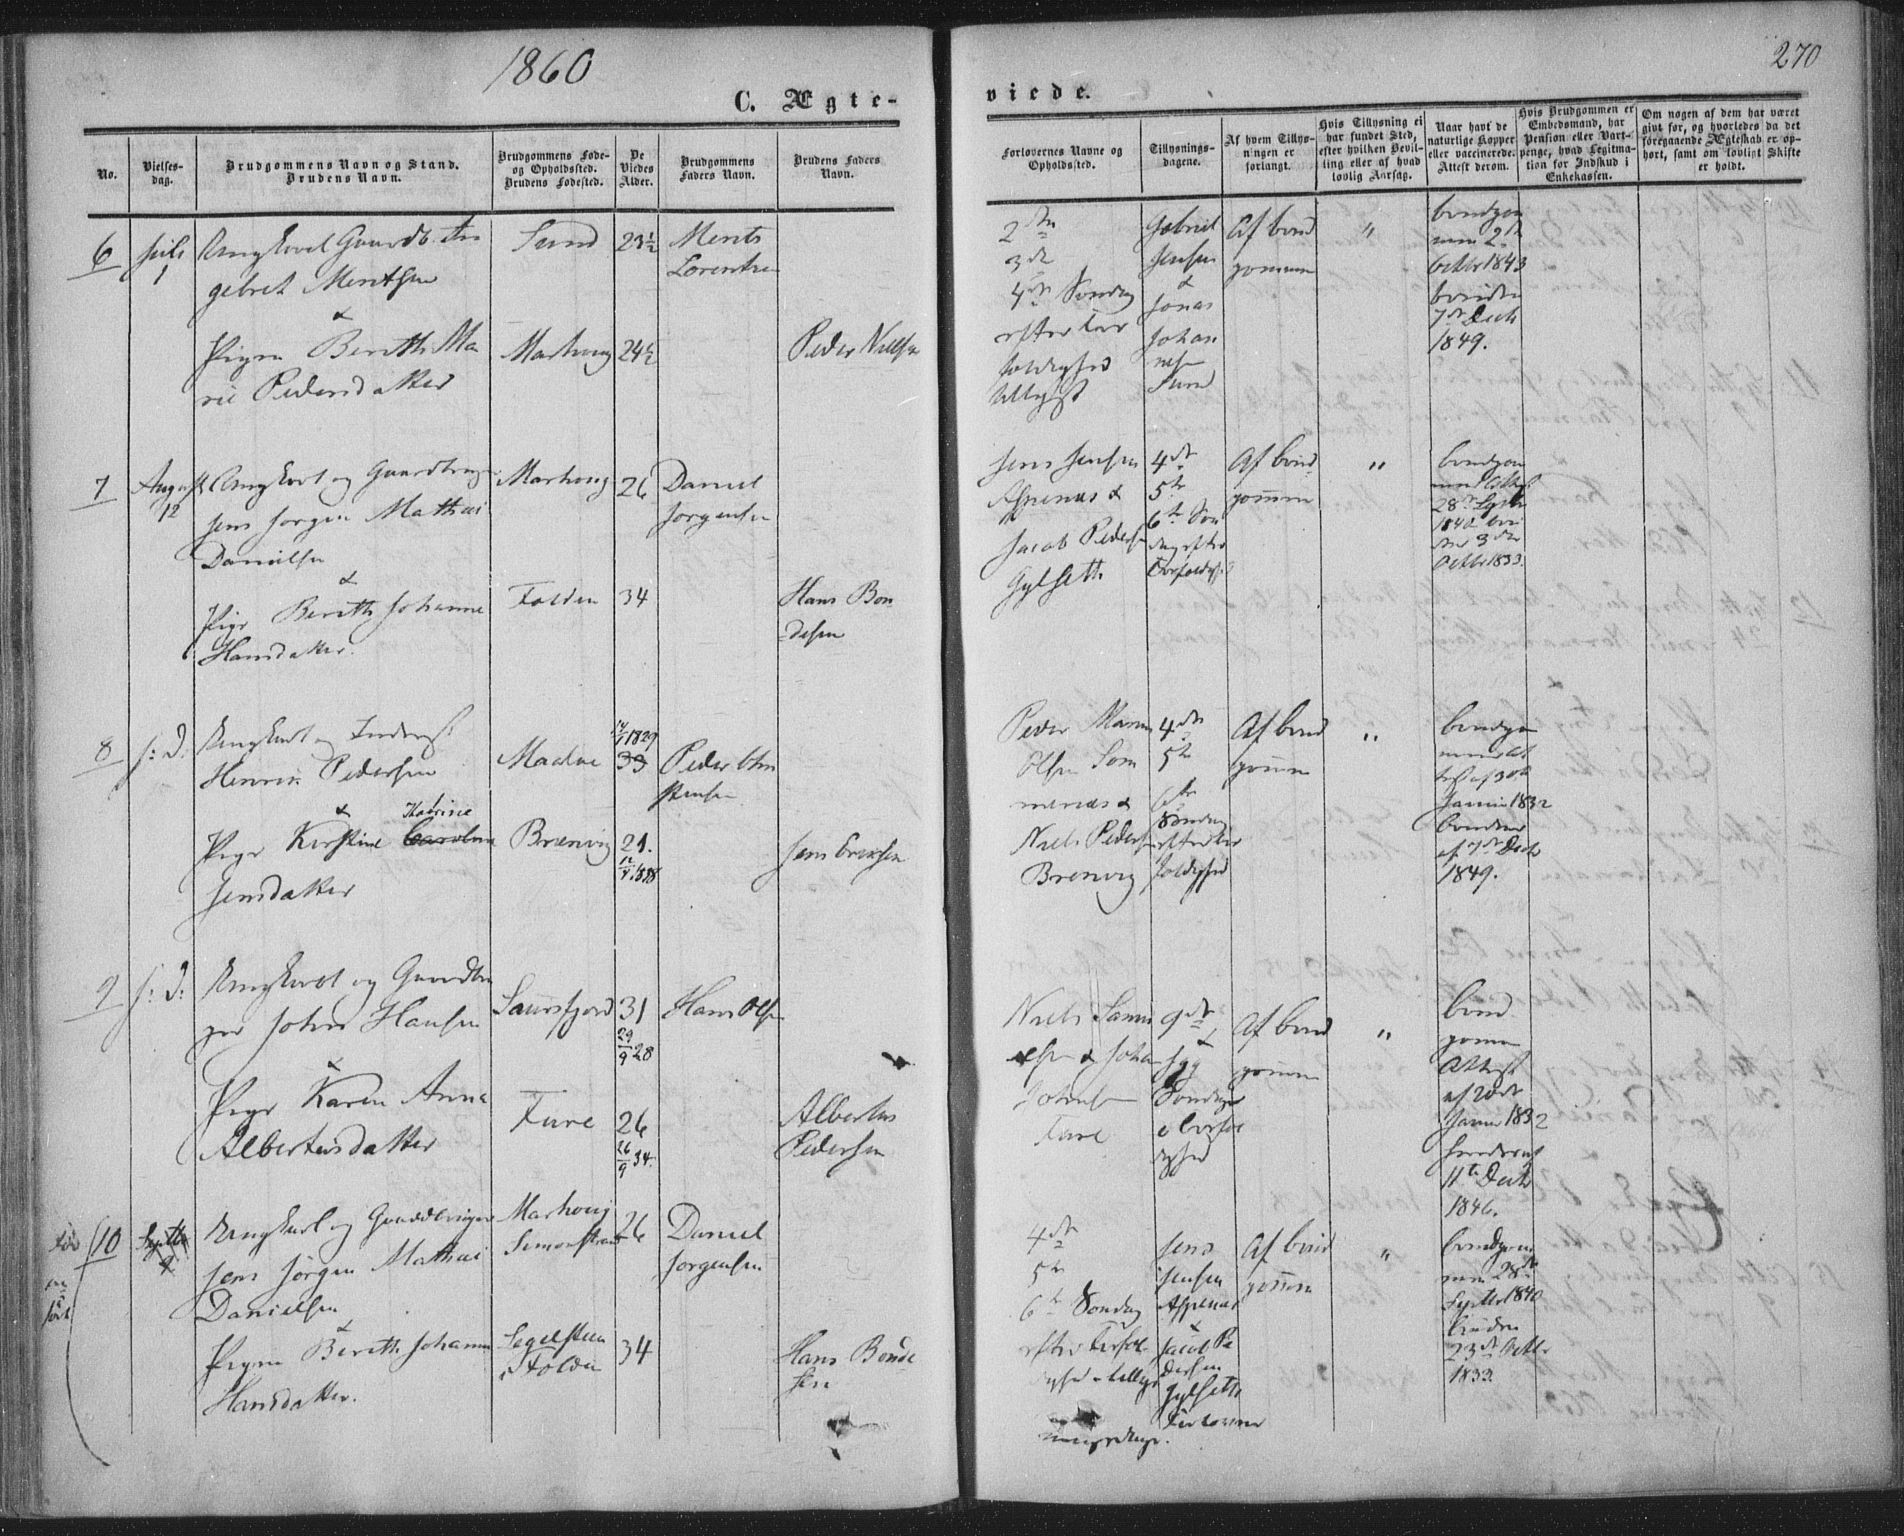 1860
270
C. Ægte-
viede.
No.
Vielses-
dag.
Brudgommens Navn og Stand.
Brudens Navn.
Brudgommens Føde-
og Opholdssted.
Brudens Fødested.
De
Viedes
Alder.
Brudgommens
Faders Navn.
Brudens Faders
Navn.
Forlovernes Navne og
Opholdssted.
Tillysnings-
dagene.
Af hvem Tillys-
ningen er
forlangt.
Hvis Tillysning ei
har fundet Sted,
efter hvilken Bevil-
ling eller af hvad
lovlig Aarsag.
Naar havt de
naturlige Kopper
eller vaccinerede.
Attest derom.
Hvis Brudgommen er
Embedsmand, har
Pension eller Vart-
penge, hvad Legitima-
tion for Indskud i
Enkekassen.
Om nogen af dem har været
gift før, og hvorledes da det
foregaaende Ægteskab er op-
hørt, samt om lovligt Skifte
er holdt.
6
Juli
1
Ungkarl Gaardb. An
gebret Mentsen
&
Pigen Berith Ma
rie Pedersdatter
Sund
Marhoug
23½
24½
Ments
Lorentsen
Peder Nielsen
2den
3de
4de Søndag
efter Tre
foldighed
tillyst
Gabriel
Jensen
&
Jonas
Johan
nesen
Sund
Af brud
gommen
"
brudgom
men 2de
Octbr 1843
bruden
7de Decb
1849.
7
August
12
Ungkarl og Gaardbruger
Jens Jørgen Mathias
Danielsen
&
Pige Berith Johanna
Hansdatter.
Marhoug
Folden
26
34
Daniel
Jørgensen
Hans Bon
desen
Jens Jensen
Aspenæs &
Jacob Pedersen
Gylseth
4de
5te
6te Søn
dag efter
Trefoldigh.
Af brud
gommen
"
brudgom
men Attest
28de Septbr
1840 bru
den 3de
Octbr 1833.
8
s: D:
Ungkarl og Inderst
Henrik Pedersen
&
Kathrine
Pige Kirstine Carolina
Jensdatter
Madsø
Brænvig
1829
33
21.
1838
Peder Chri
stensen
Jens Evensen
Peder Marin
Olsen Som
menæs &
Niels Pedersen
Brenvig
4de
5te
6te
Søndag
efter Tre
foldighed
Af brud
gommen
"
brudgom
men At
test af 30te
Januar 1832
brudens
af 7de Decb
1849.
9
s: D:
Ungkarl og Gaardbru
ger Johan Hansen
&
Pige Karen Anna
Albertusdatter
Saursfjord
Fure
31
29/9 28
26
26/9 34.
Hans Olsen
Albertus
Pedersen
Niels Samu
elsen & Johan
Johnsen
Fure
9de
&
Søndage
e Trefol
dighed
Af brud
gommen
"
brud
gommen
Attest
af
Januar 1832
11te Decb
1846.
10
Septbr
9
Ungkarl og Gaardbruger
Jens Jørgen Mathias
Danielsen
&
Pigen Berith Johanna
Hansdatter.
Marhoug
Simonstrand
Segelsteen
i Folden
26
34
Daniel
Jørgensen
Hans Bonde
sen
4de
5te
6te Søndag
efter Trefol
dighed
Jens
Jensen
Aspenæs
&
Jacob Pe
dersen
Gylseth
Forlovere
Af brud
gommen
"
brudgom
men 28de
Septbr 1840
bruden
23de Octbr
1833.